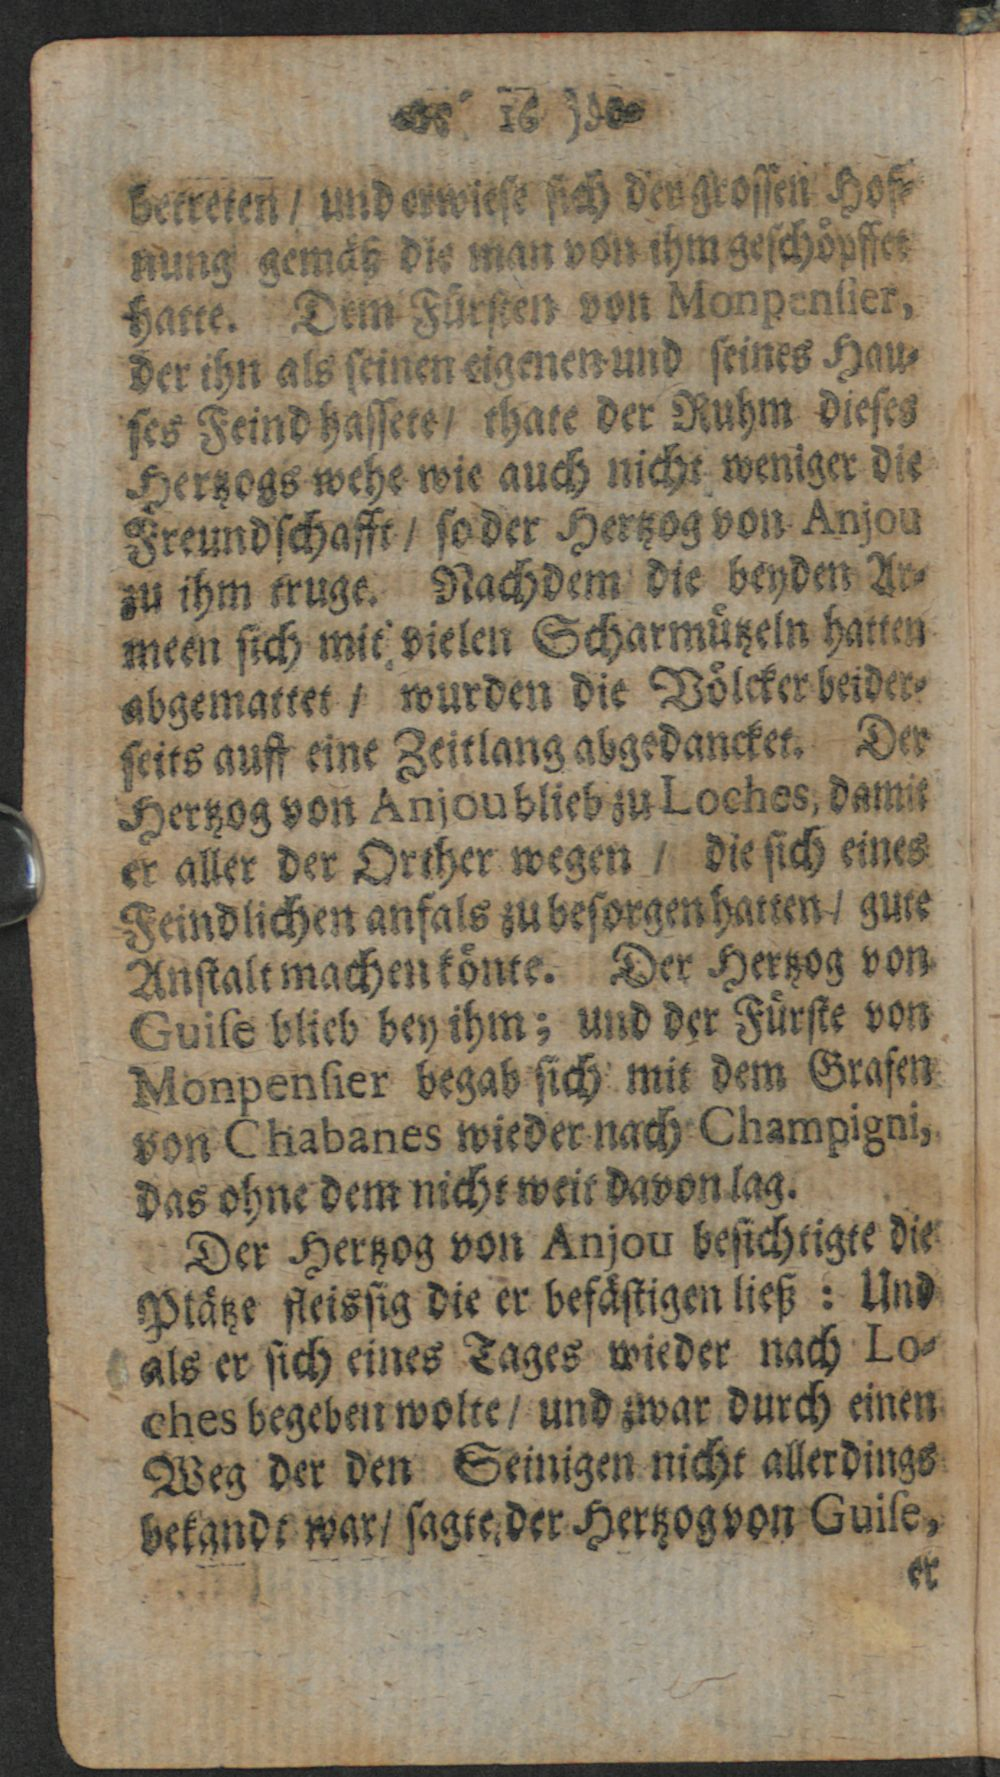 16
betreten / und erwiese sich der grossen Hof-
nung gemäß die man von ihm geschöpffet
hatte. Dem Fürsten von Monpensier,
der ihn als seinen eigenen und seines Hau-
ses Feind hassete / thate der Ruhm dieses
Hertzogs wehe wie auch nicht weniger die
Freundschafft / so der Hertzog von Anjou
zu ihm truge. Nachdem die beyden Ar-
meen sich mit vielen Scharmützeln hatten
abgemattet / wurden die Völcker beider-
seits auff eine Zeitlang abgedancket. Der
Hertzog von Anjou blieb zu Loches, damit
er aller der Orther wegen / die sich eines
Feindlichen anfals zu besorgen hatten / gute
Anstalt machen könte. Der Hertzog von
Guise blieb bey ihm; und der Fürste von
Monpensier begab sich mit dem Grafen
von Chabanes wieder nach Champigni,
das ohne dem nicht weit davon lag.
Der Hertzog von Anjou besichtigte die
Plätze fleissig die er befästigen ließ : Und
als er sich eines Tages wieder nach Lo-
ches begeben wolte / und zwar durch einen
Weg der den Seinigen nicht allerdings
bekandt war / sagte der Hertzog von Guise,
er